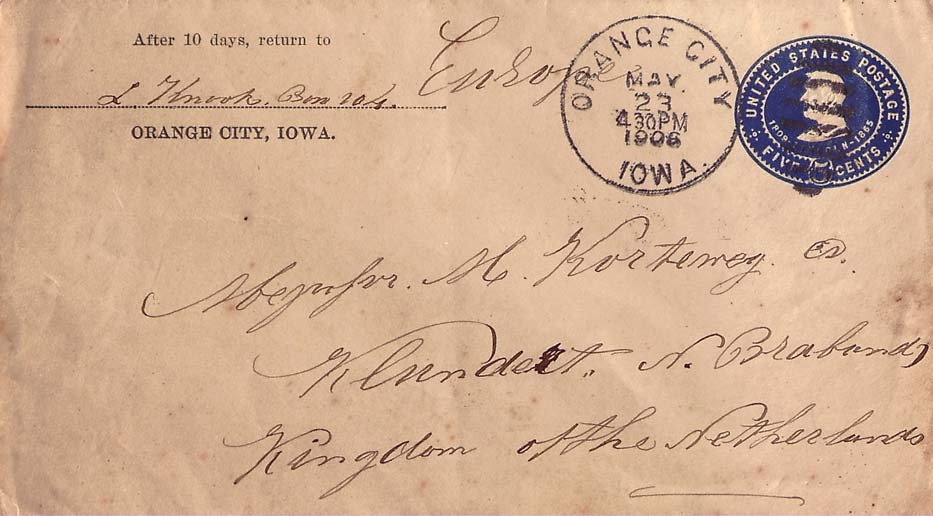 After 10 days, return to
L. Knook. Box 104.
ORANGE CITY, IOWA.
Europe
ORANGE CITY
MAY
23
4 30PM
1906
IOWA.
UNITED STATES POSTAGE
FIVE 5 CENTS
M. Korteweg.
Klundert. N. Braband
Kingdom of the Netherlands